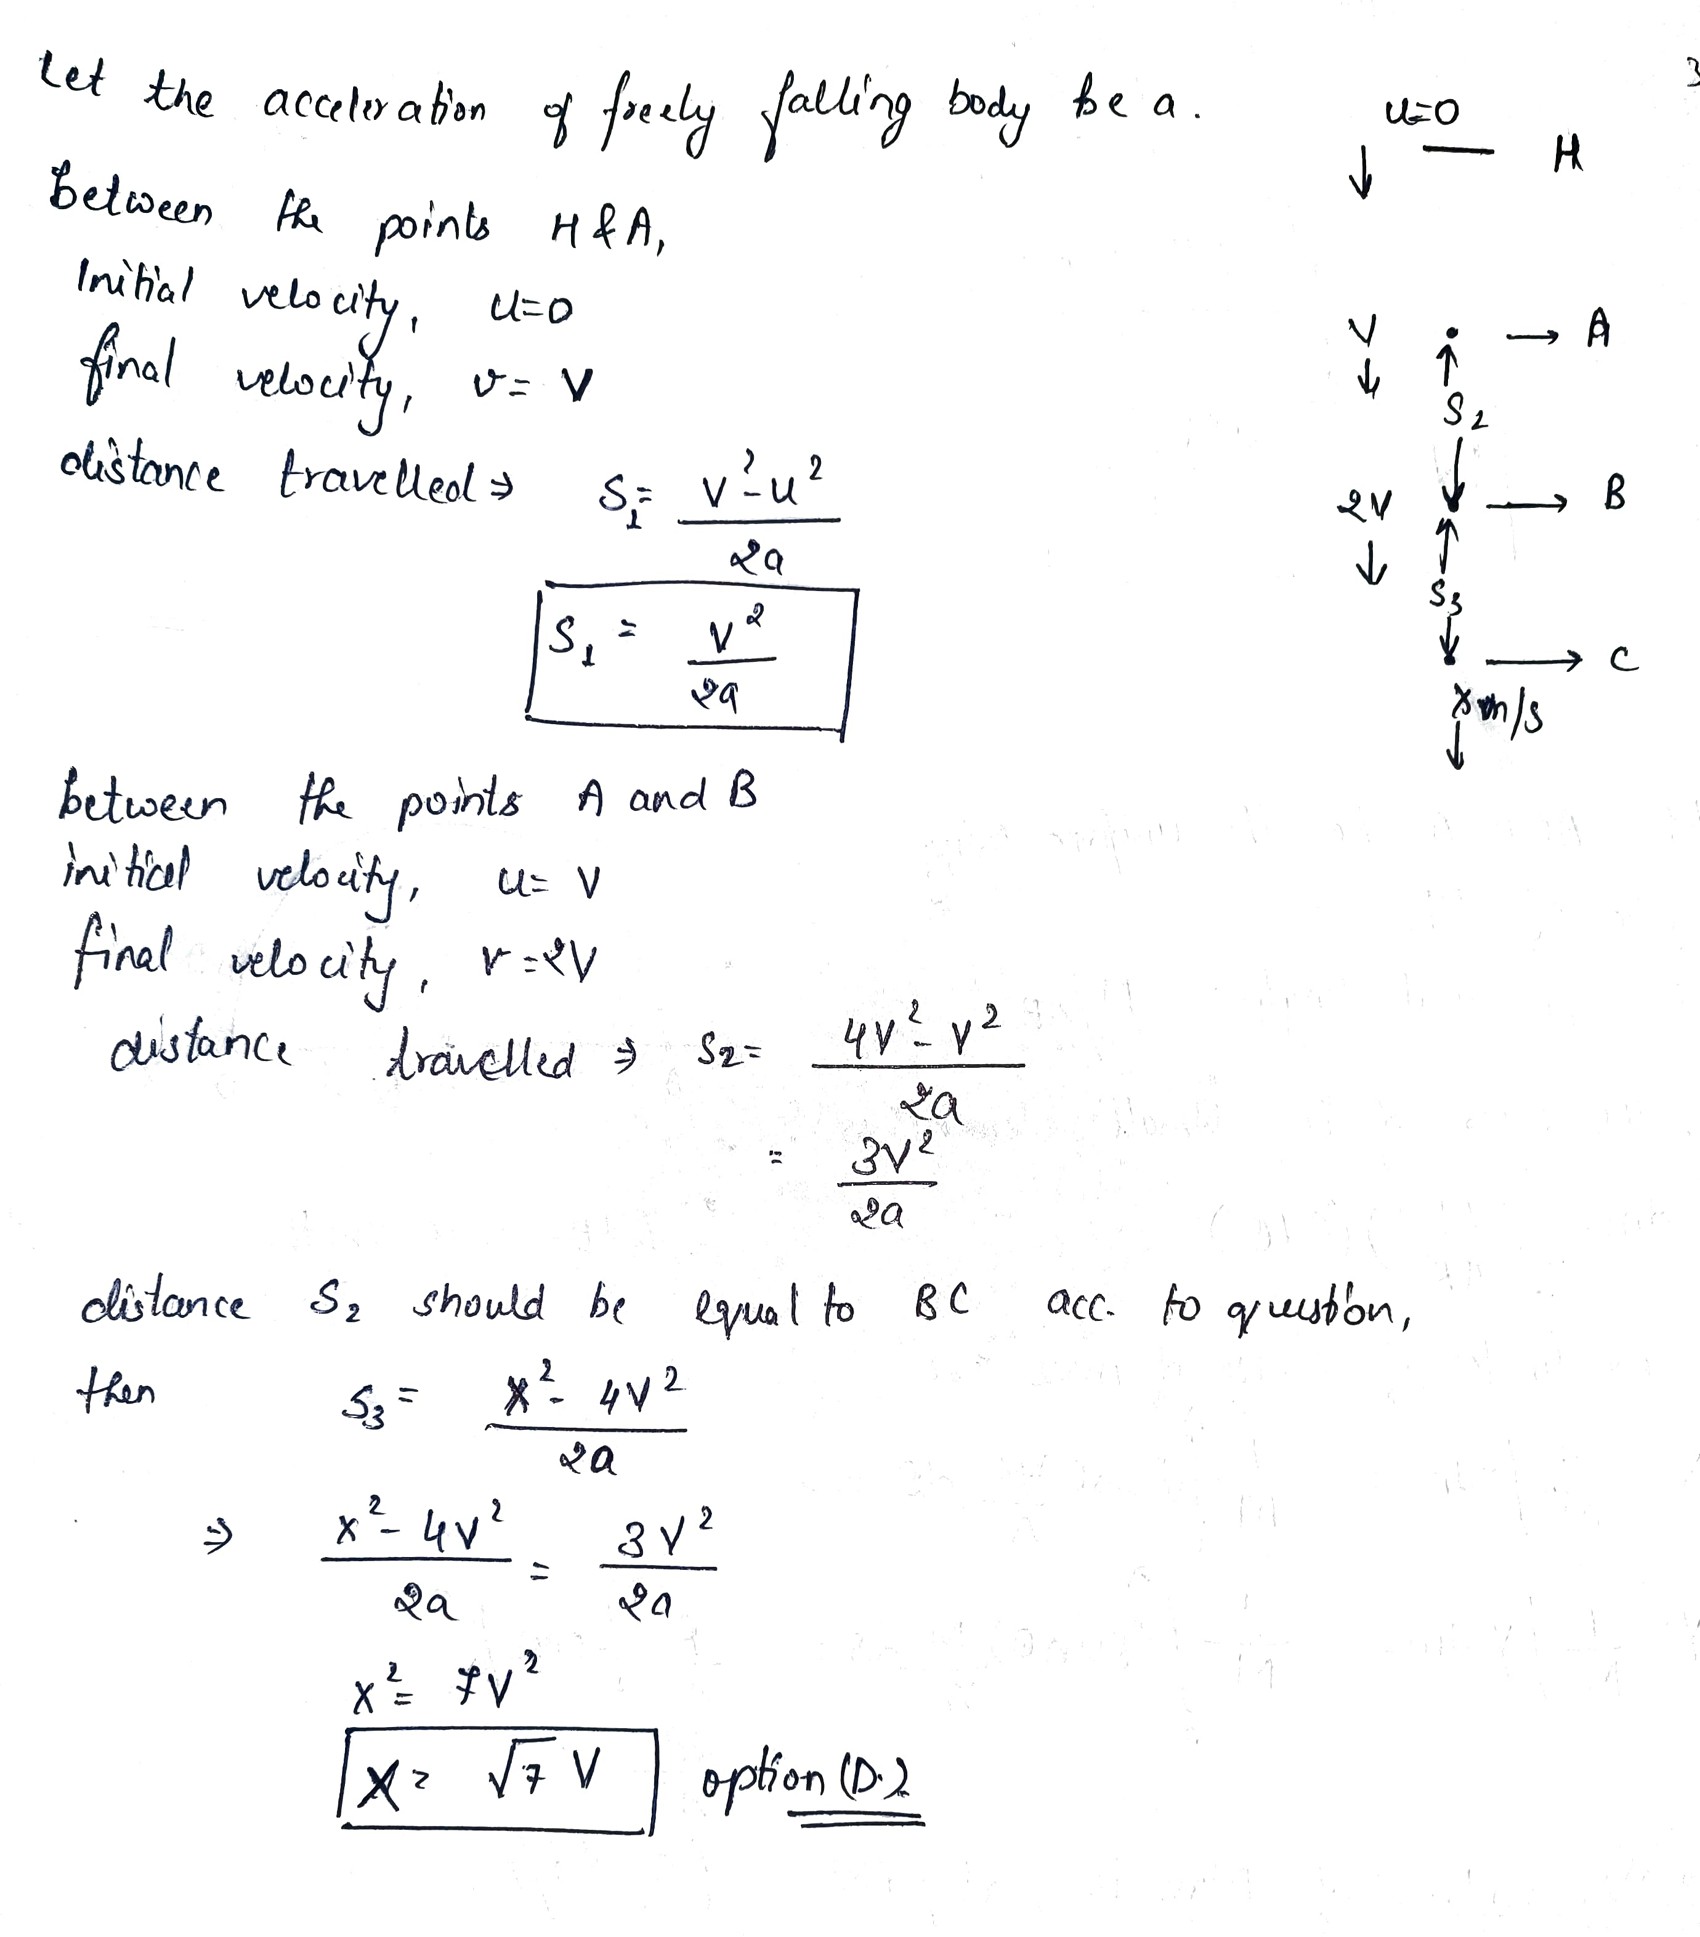 Let the acceleration of freely falling body be a.
Between the points H & A,
Initial velocity, u=0
final velocity, v= V
distance travelled ⇒ S₁= V²-u²
2a
S₁ = V²
2a
between the points A and B
initial velocity, u= V
final velocity, v=2V
distance travelled ⇒ S₂= 4V²-V²
2a
= 3V²
2a
distance S₂ should be equal to BC acc. to question,
then S₃= x²- 4V²
2a
⇒ x²- 4V² = 3V²
2a 2a
x²= 7V²
x= √7 V option (D.)
3
u=0
↓ — H
V → A
↓ ↑
S₂
↓
2V → B
↓ ↑
S₃
↓
→ C
x m/s
↓